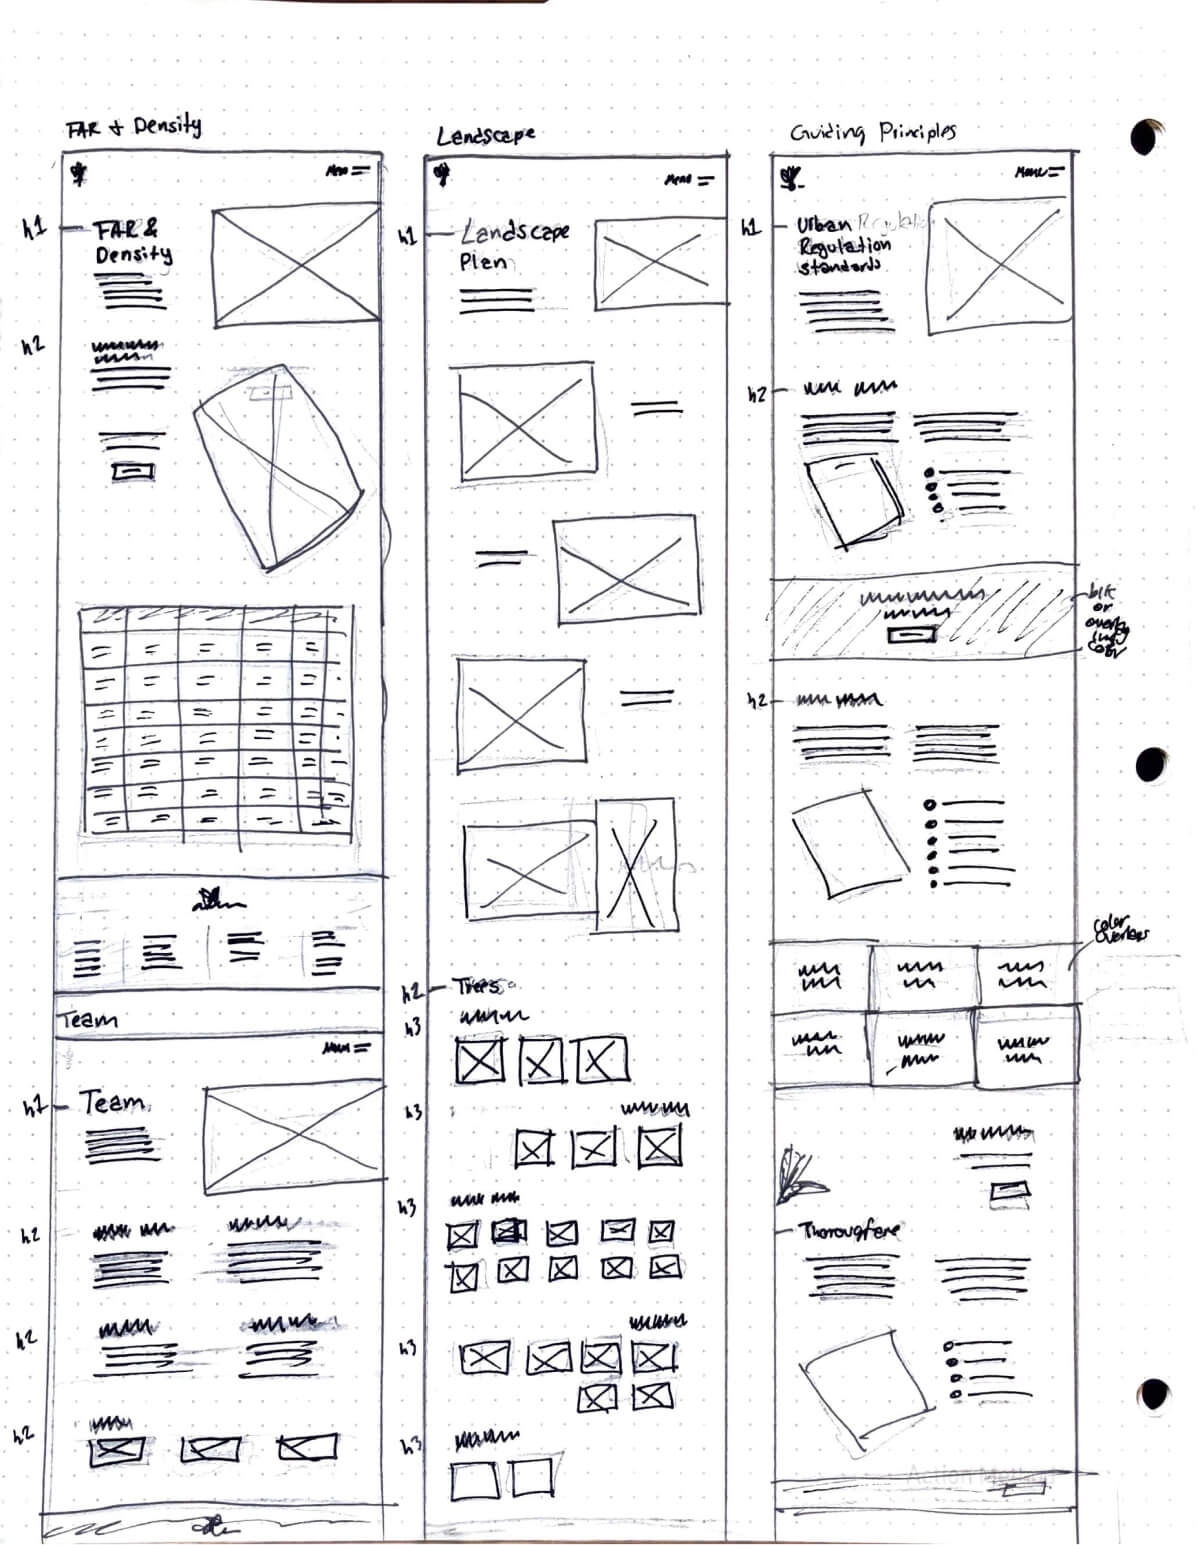 FAR & Density
Menu
h1
FAR &
Density
h2
Team
Menu
h1
Team
h2
h2
h2
Landscape
Menu
h1
Landscape
Plan
h2
Trees
h3
h3
h3
h3
h3
Guiding Principles
Menu
h1
Urban
Regulation
standards
h2
blk
or
color
h2
color
overlays
Thoroughfare